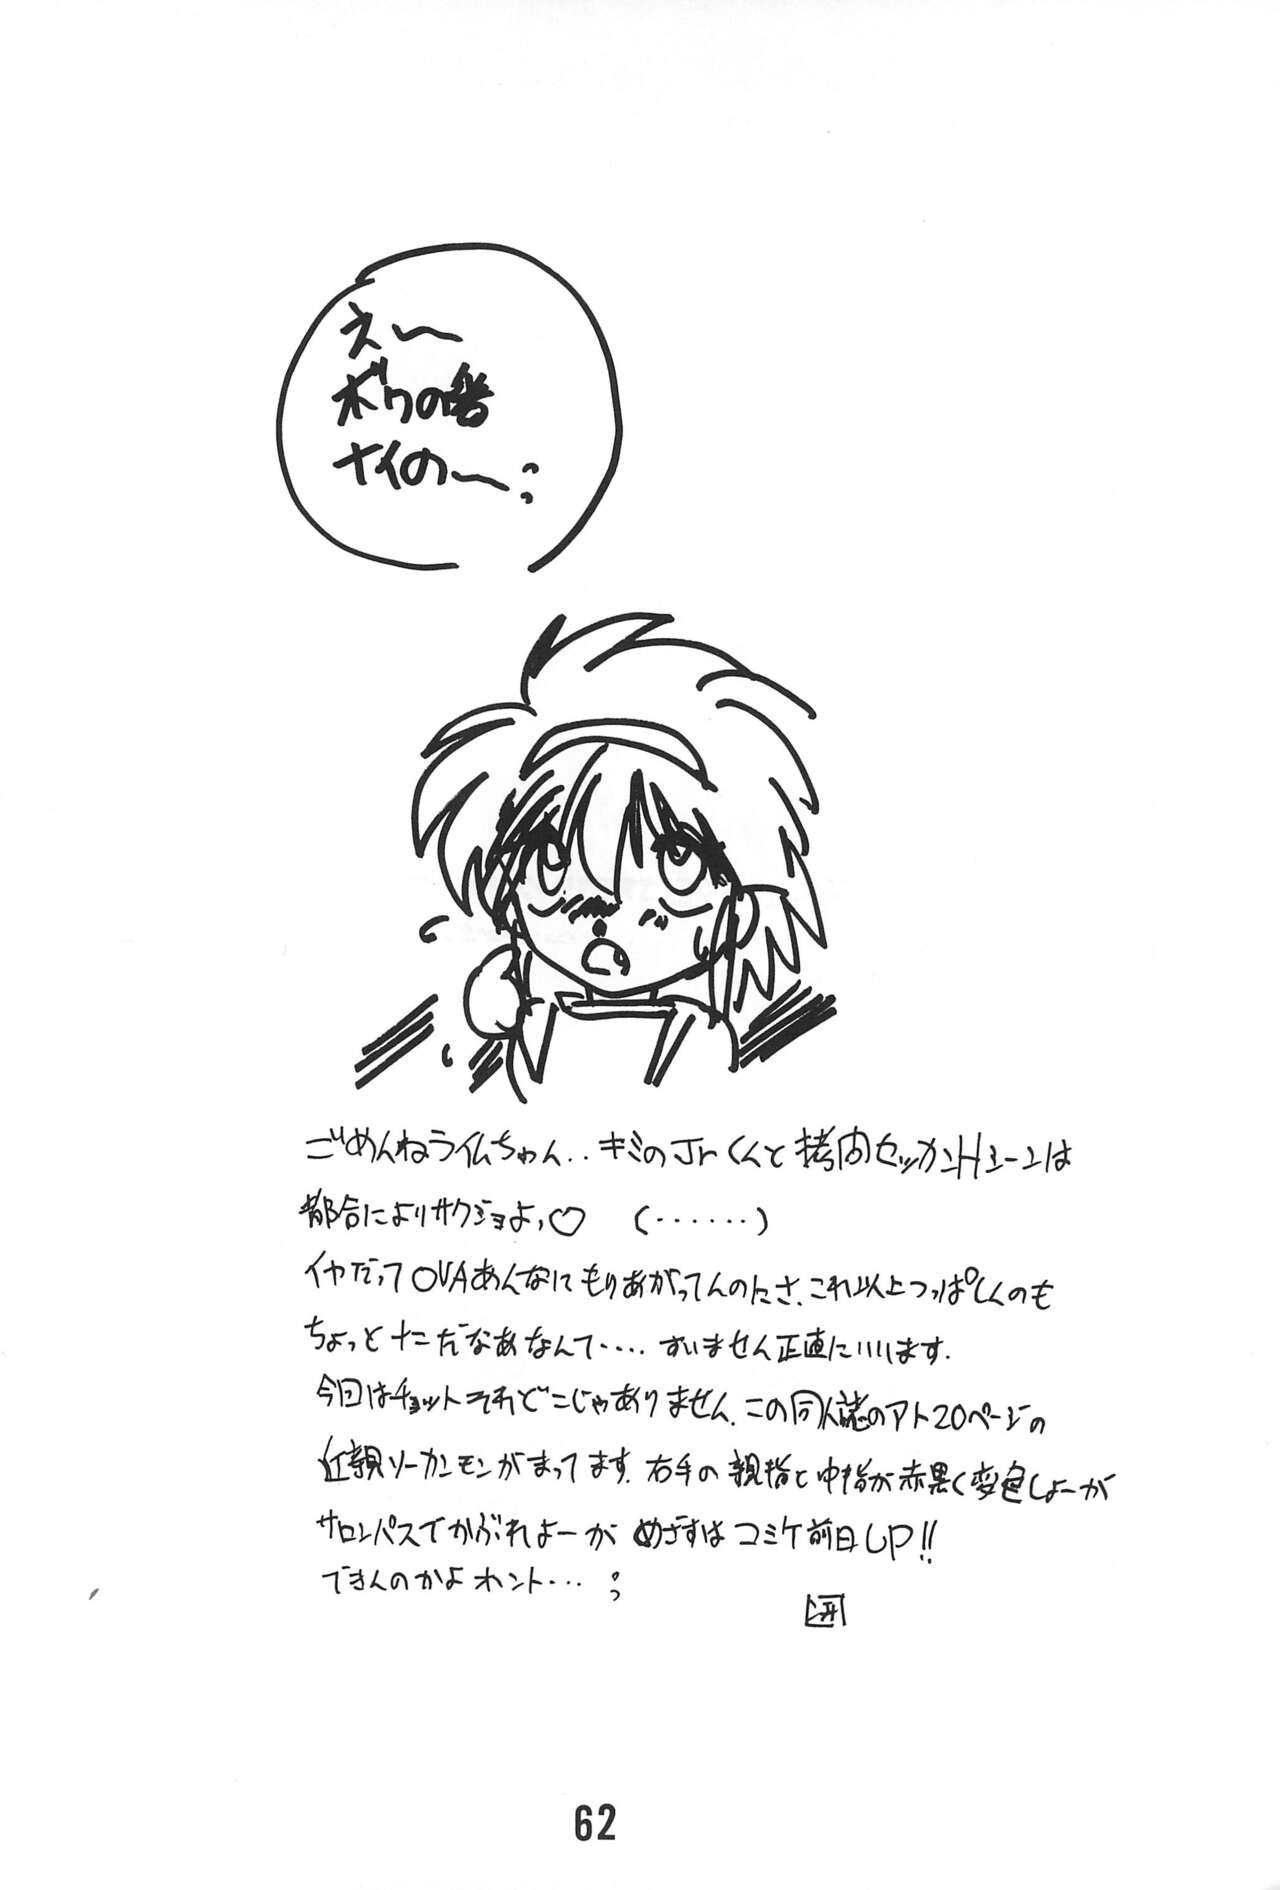 えー
ボクの番
ナイのー
ごめんねライムちゃん‥キミのJrくんと拷内セッカンHシーンは
都合によりサクジョよっ♡ (‥‥‥)
イヤだってOVAあんなにもりあがってんのにさ、これ以上つっぱしんのも
ちょっとナニだなあなんて‥‥すいません正直にいいます.
今回はチョットそれどこじゃありません.この同人誌のアト20ページの
近親ソーカンモンがまってます.右手の親指と中指が赤黒く変色しよーが
サロンパスでかぶれよーが めざすはコミケ前日UP!!
できんのかよホント‥‥
62